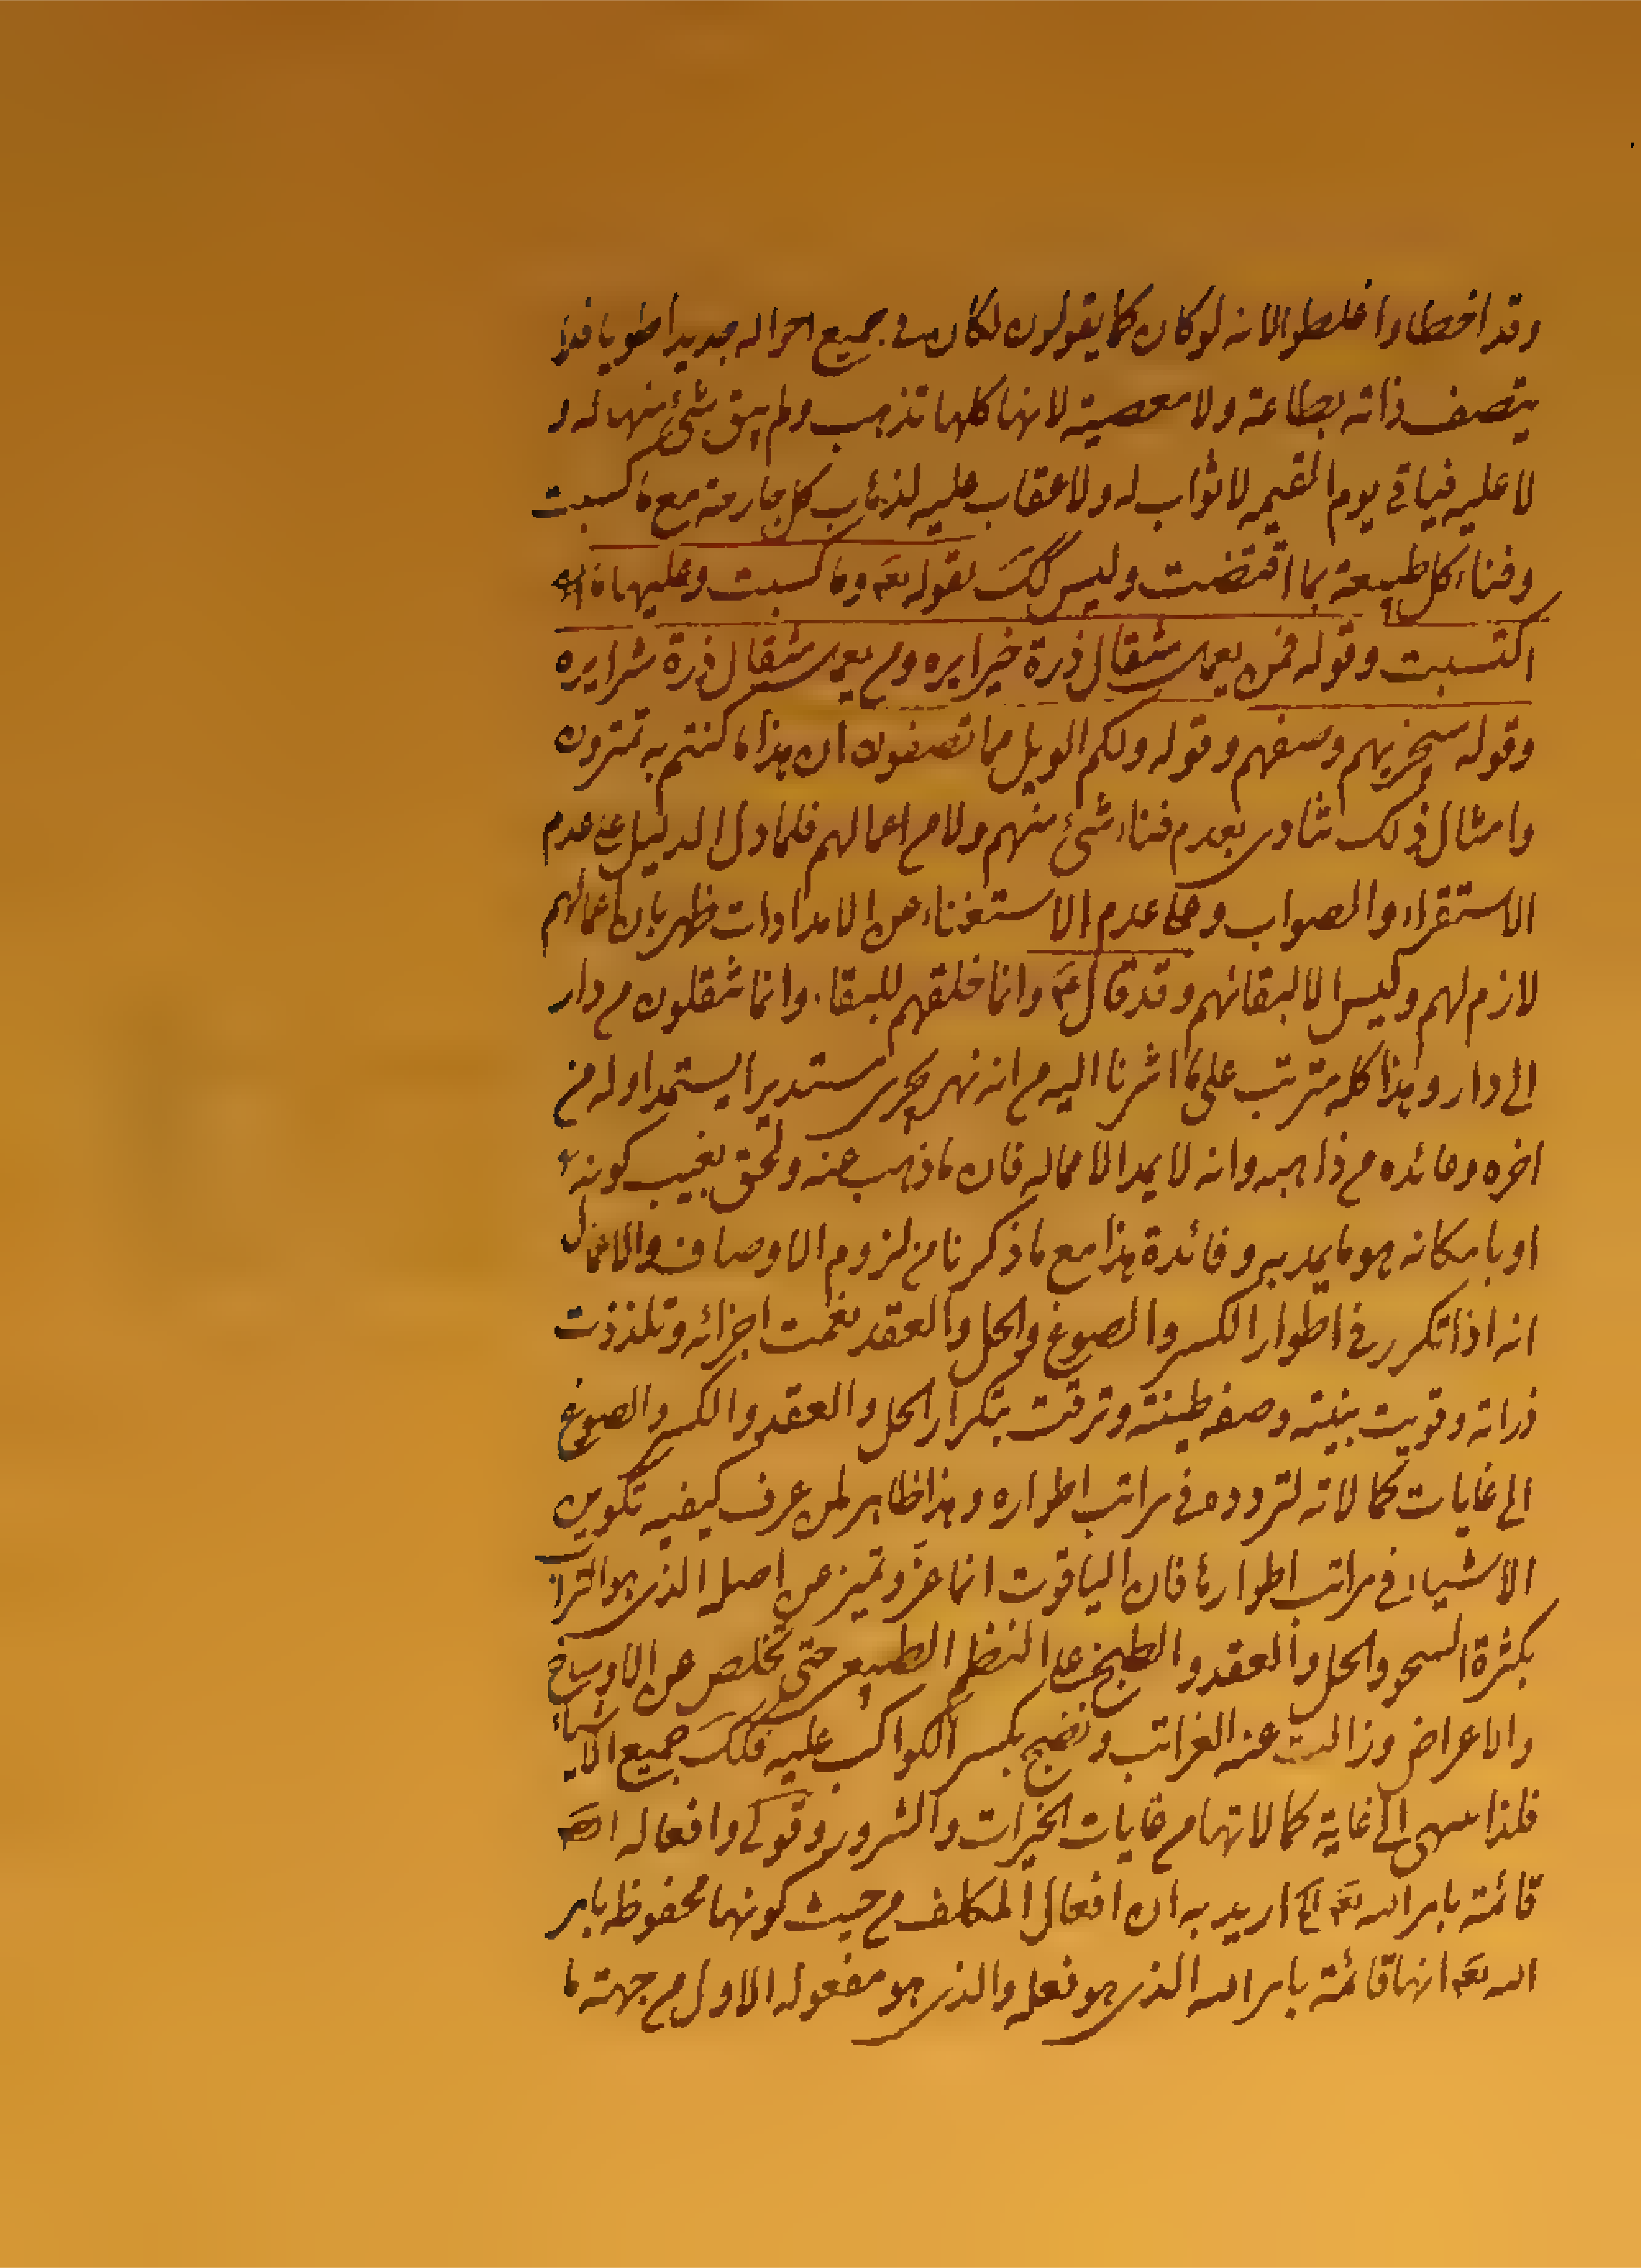 وقد اخطاوا غلطوا لانه لو كان كما يقولون لكان فى جميع احواله جديدا طريا فلا
يتصف ذاته بطاعة ولا معصية لانها كلها تذهب ولم يبق شئ منها له و
لا عليه فياتى يوم القيمه لا ثواب له ولا عقاب عليه لذهاب كل جارحة مع ما كسبت
وفناء كل طبيعة بما اقتضت وليس كك بقوله تع وما كسبت وعليها ما
اكتسبت وقوله فمن يعمل مثقال ذرة خيرا يره ومن يعمل مثقال ذرة شرا يره
وقوله سيجزيهم وصفهم وقوله ولكم الويل مما تصفون ان هذا ما كنتم به تمترون
وامثال ذلك تنادى بعدم فناء شئ منهم ولا من اعمالهم فلما دل الدليل على عدم
الاستقراء والصواب وعلى عدم الاستغناء عن الامدادات ظهر بان اعمالهم
لازم لهم وليس الا لبقائهم وقد قال ع وانما خلقتم للبقاء وانما تنقلون من دار
الى دار وهذا كله مترتب على ما اشرنا اليه من انه نهر يجرى مستديرا يستمد اوله من
اخره وعائده من ذاهبه وانه لا يمد الا مماله فان ما ذهب عنه ولحق بغيب كونه
او بامكانه هو ما يمد به وفائدة هذا مع ما ذكرنا من لزوم الاوصاف والاعمال
انه اذا تكرر فى اطوار الكسر والصوغ والحل والعقد نعمت اجزائه وتلذذت
ذراته وقويت بنيته وصفه طينته وترقت بتكرار الحل والعقد والكسر والصوغ
الى غايات كمالاته لتردده فى مراتب اطواره وهذا ظاهر لمن عرف كيفيه تكوين
الاشياء فى مراتب اطوارها فان الياقوت انما عز وتميز عن اصله الذى هو التراب
بكثرة السحق والحل والعقد والطبخ على النظم الطبيعى حتى تخلص عن الاوساخ
والاعراض وزالت عنه الغرائب ونضج بكسر الكواكب عليه فكك جميع الاشياء
فلذا ينتهى الى غاية كمالاتها من غايات الخيرات والشرور وقولى وافعاله
قائمة بامر الله تع الخ اريد به ان افعال المكلف من حيث كونها محفوظه بامر
الله تع انها قائمة بامر الله الذى هو فعله والذى هو مفعوله الاول من جهة ما